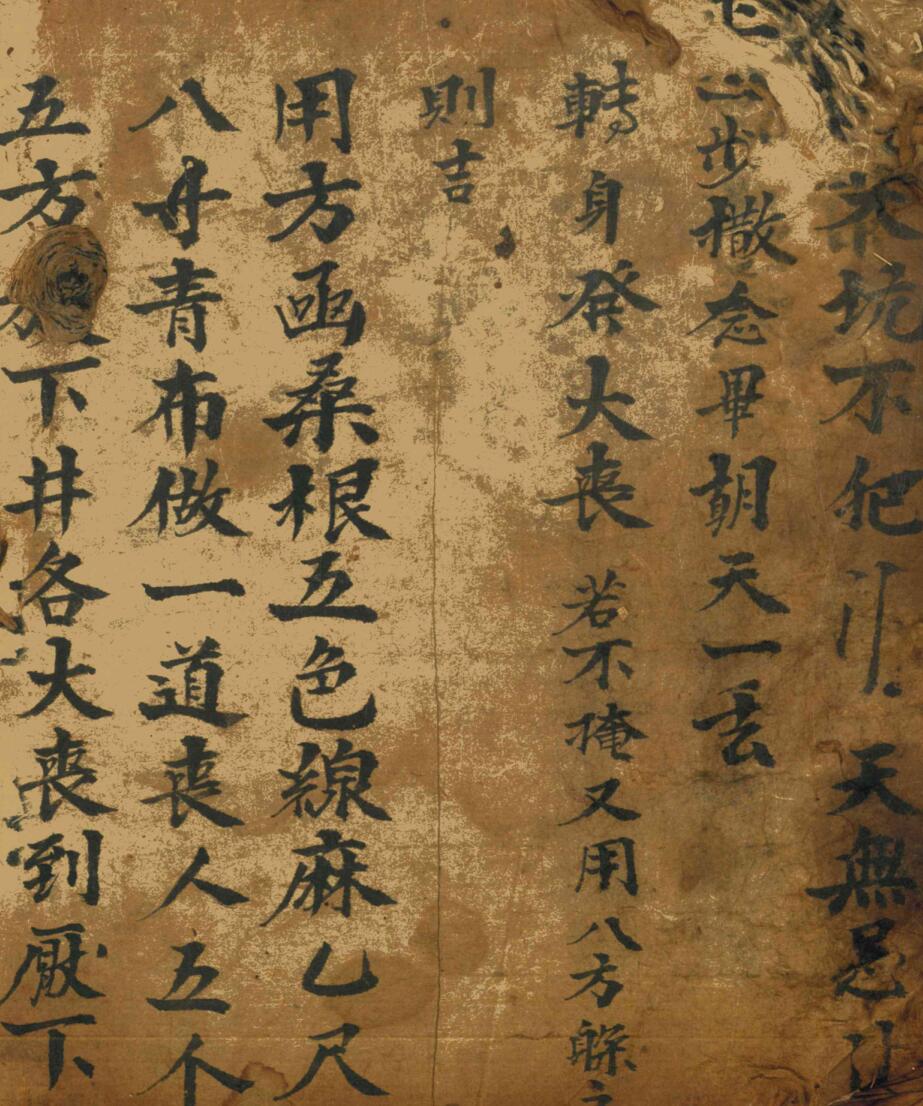 茶坑不犯 天無忌
步撒念畢朝天一丢
轉身發大喪 若不掩又用八方躲之
則吉
用方凾桑根五色線麻乙尺
八寸青布做一道喪人五个
五方 下井各大喪到厭下